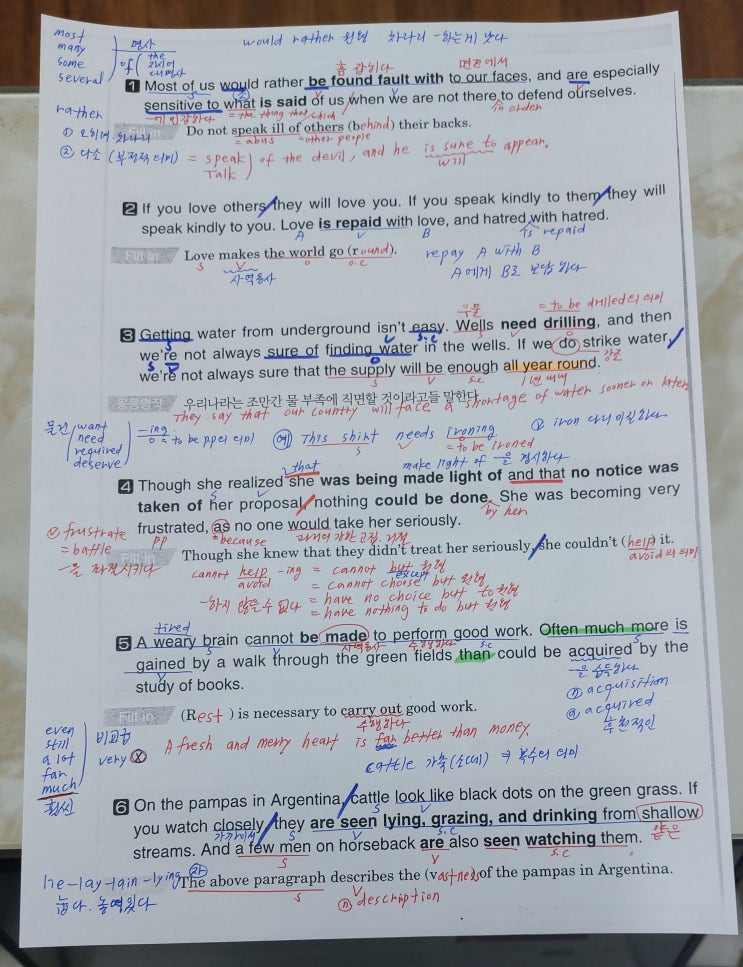 most
many
some
several
of
명사
the
소유격
대명사
would rather 원형 차라리 -하는게 낫다
흠 잡히다
면전에서
1 Most of us would rather be found fault with to our faces, and are especially
sensitive to what is said of us when we are not there to defend ourselves.
-에 민감하다 = the thing that which
in order
Fill in Do not speak ill of others (behind) their backs.
= abus = other people
rather
① 오히려 차라리
② 다소 (부정적 의미)
= speak
Talk
of the devil, and he is sure to appear.
2 If you love others, they will love you. If you speak kindly to them, they will
speak kindly to you. Love is repaid with love, and hatred with hatred.
A V B is repaid
Fill in Love makes the world go (round).
S V O O.C
사역동사
repay A with B
A에게 B로 보답하다
우물 = to be drilled의 의미
3 Getting water from underground isn't easy. Wells need drilling, and then
we're not always sure of finding water in the wells. If we do strike water,
we're not always sure that the supply will be enough all year round.
강조
S V S.C
1년 내내
영작 우리나라는 조만간 물 부족에 직면할 것이라고들 말한다.
They say that our country will face a shortage of water sooner or later
물건
want
need
required
deserve
-ing
= to be pp의 의미
예) This shirt needs ironing
S
= to be ironed
ⓥ iron 다리미질하다
that
make light of -을 경시하다
4 Though she realized she was being made light of and that no notice was
taken of her proposal, nothing could be done. She was becoming very
by her
frustrated, as no one would take her seriously.
= because 과거의 강한 고집. 거절
ⓥ frustrate
= baffle
-을 좌절시키다
pp
Fill in Though she knew that they didn't treat her seriously, she couldn't (help) it.
avoid의 의미
cannot help -ing = cannot but 원형
avoid
except
= cannot choose but 원형
-하지 않을 수 없다 = have no choice but to 원형
= have nothing to do but 원형
tired
5 A weary brain cannot be made to perform good work. Often much more is
사역동사 수행하다 S.C
gained by a walk through the green fields than could be acquired by the
-을 습득하다
study of books.
ⓝ acquisition
ⓐ acquired
후천적인
Fill in (Rest) is necessary to carry out good work.
수행하다
A fresh and merry heart is far better than money.
even
still
a lot
far
much
훨씬
비교급
very ⓧ
cattle 가축(소떼) ⇒ 복수의 의미
6 On the pampas in Argentina, cattle look like black dots on the green grass. If
you watch closely, they are seen lying, grazing, and drinking from shallow
가까이서 S V S.C
얕은
streams. And a few men on horseback are also seen watching them.
S V S.C
Fill in The above paragraph describes the (vastness) of the pampas in Argentina.
S V
lie-lay-lain-lying
눕다. 놓여있다
ⓝ description